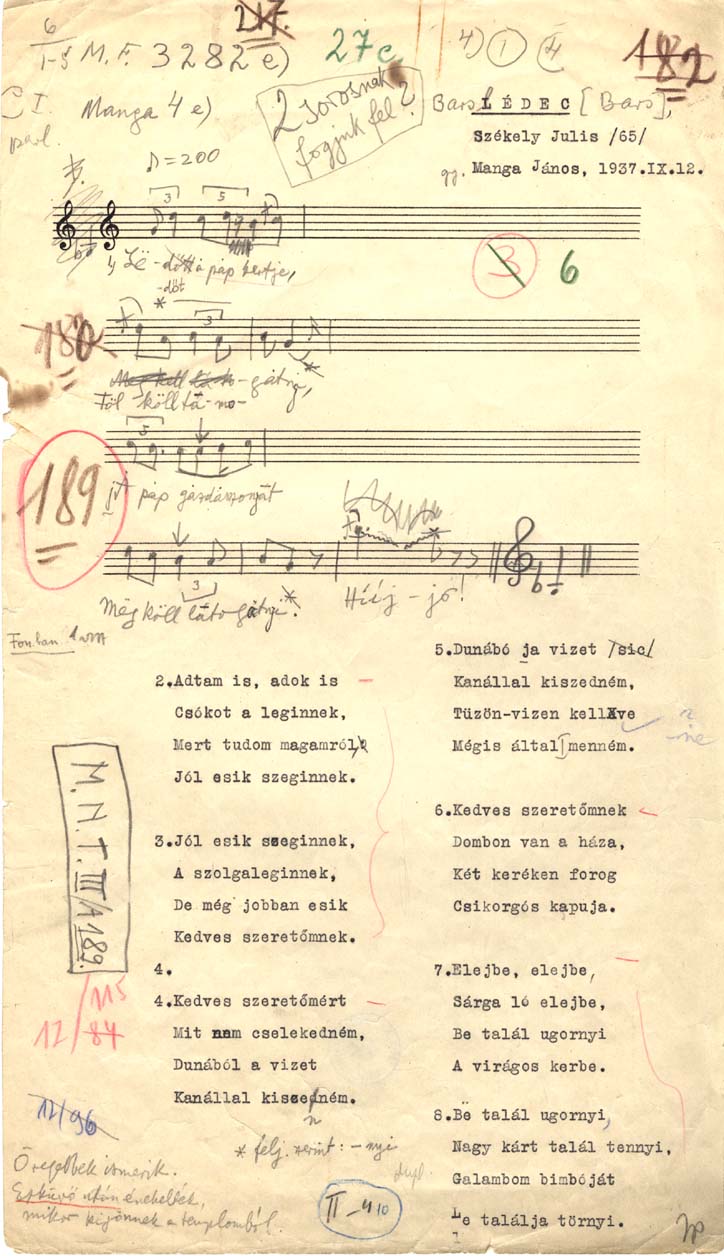 6
1-5
M.F. 3282 e)
217.
27c
4) 1 4
182
C I.
Manga 4 e)
2 sorosnak
fogjuk fel?
Bars LÉDEC [Bars],
Székely Julis /65/
gy. Manga János, 1937.IX.12.
parl.
♪=200
3 5
-dött a páp kertje,
-döt
3 6
180
3
Meg köll
-gátnyi,
Föl köll tá-mo-
5
189
páp gázdásszonyát
3
Még köll látogátnyi.
Híij - jó!
2.Adtam is, adok is
Csókot a leginnek,
Mert tudom magamról,
Jól esik szeginnek.
3.Jól esik szeginnek,
A szolgaleginnek,
De még jobban esik
Kedves szeretőmnek.
4.
4.Kedves szeretőmért
Mit nem cselekedném,
Dunából a vizet
Kanállal kiszedném.
n
5.Dunábó ja vizet /sic/
Kanállal kiszedném,
Tüzön-vizen kellXve
n
-ne
Mégis által menném.
6.Kedves szeretőmnek
Dombon van a háza,
Két keréken forog
Csikorgós kapuja.
7.Elejbe, elejbe,
Sárga ló elejbe,
Be talál ugornyi
A virágos kerbe.
8.Bë talál ugornyi,
Nagy kárt talál tennyi,
Galambom bimbóját
Le találja törnyi.
M.N.T. III/A 189.
12/115
84
12/96
* felj. szerint: -nyi
dupl.
Öregebbek ismerik.
Esküvő után énekelték,
mikor kijönnek a templomból.
II-410